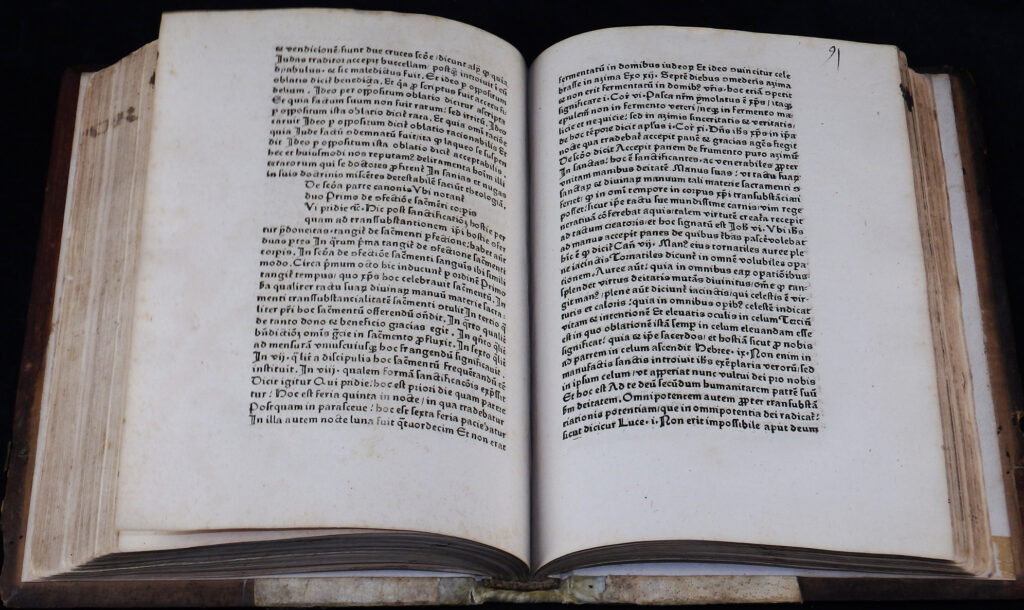 & vendicionẽ fiunt due cruces scõe / dicunt alij q̃ quia
Judas traditor accepit buccellam: postq̃ introiuit ĩ eũ
dyabulus / & sic maledictus fuit. Et ideo p oppositum
oblatio dicit᷑ benedicta. Et q̃a p̱scriptus fuit
delium. Ideo per oppositum oblatio dicitur ascripta
Et quia factum suum non fuit ratum: sed irritũ. Ideo
p oppositum ista oblatio dicit᷑ rata. Et quia omi racõe
caruit Ideo p oppositũ dicit᷑ oblatio racionabilis Et
quia Jude factũ ↄdemnatũ fuit
dit Ideo p oppositum ista oblatio dicit᷑ acceptabilis.
hec et huiusmodi nos reputam᷒ deliramenta hoĩm illi
teratorum qui se doctores p̱fitent᷑ In sanias et nugas
in suis doctrinis miscẽres detestabilẽ faciũt theologiã.
De scõa parte canonis Vbi notant᷑
duo Primo de ↄfectiõe sacm̃ẽti corpis
Vi pridie &c̃. Hic post sanctificatiõẽ hostie per
quam ad transsubstantionem ip̃i hostie offer
tur
duas ptes In q̃rum p̃ma tangit᷑ de ↄfectione sacm̃ẽti
corpis. In scõa de ↄfectiõe sacm̃ẽti sanguĩs ibi simili
modo. Circa p̃mum octo hic inducunt᷑ p ordinẽ Primo
tangit᷑ tempus / quo xp̃s hoc celebrauit sacm̃ẽtũ. In
ba qualiter tactu suaꝝ diuinaꝝ manuũ materie sacra
menti transsubstancialitatẽ sacm̃ẽti ↄtulit In tertio q̃
liter p̃ri hoc sacm̃ẽtũ offerendũ oñdit. In q̃rto qualit᷑
de tanto dono & beneficio gracias egit. In q̃nto q̃lit᷑
bñdictiõꝫ omĩs gr̃cie in sacm̃ẽto p̱fluxit. In sexto q̃lit᷑
ad mensurã vniuscuiusq̃ hoc frangendũ significauit.
In vij. q̃lit᷑ a discipulis hoc sacm̃ẽtũ frequẽtandũ ee
instituit. In viij. qualem formã sanctificacõis exp̃ssit
Dicit igitur Qui pridie: hoc est priori die quam patere
tur: Hoc est feria quinta in nocte / in qua tradebatur
Postquam in parasceue: hoc est sexta feria paciebatur
In illa autem nocte luna fuit q̃tuordecim Et non erat
91
fermentatũ in domibus iudeoꝝ Et ideo ↄuincitur cele
brasse in azima Exo xij. Septẽ diebus ↄmederis azima
& non erit fermentatũ in domib᷒ vr̃is: hoc etiã ↄpetit
significare i. Cor̃ v. Pasca nr̃m p̃molatus ẽ xp̃s / itaq̃
epulem᷑ non in fermento veteri / neq̃ in fermento ma
licie et nequicie: sed in azimis sinceritatis & veritatis
de hoc tẽpore dicit apl̃us i. Cor̃ xi. Dñs ih̃s xp̃s in ip̃a
nocte qua tradebat᷑ accepit panẽ & gracias agẽs fregit
De scõo dicit Accepit panem de frumento puro azimũ
In sanctas: hoc ẽ sanctificantes. ac venerabiles p̱pter
vnitam manibus deitatẽ Manus suas: vt tactu suaꝝ
sanctaꝝ & diuinaꝝ manuum tali materie sacramenti ↄ
ferret: q̃ in omi tempore in corpus xp̃i transubstãciari
posset / sicut ip̃e tactu sue mundissime carnis vim rege
neratiuã cõferebat aquis: talem virtutẽ creata recepit
ad tactum creatoris: et hoc signatũ est Joh̃ vi. Vbi ih̃s
ad manus accepit panes de quibus t᷑bas pascẽ volebat
hic ẽ qd̃ dicit᷑ Can̄ vij. Man᷒ eius tornatiles auree ple
ne iacinctis Tornatiles dicunt᷑ in omnẽ volubiles opa
tionem. Auree aut̃: quia in omnibus eaꝝ opatiõibus
splender virtus deitatis mutãs diuinitus / om̃e qd̃ tan
git᷑ man᷒: plene aut̃ dicunt᷑ iacinctis / qui celestis ẽ vir
tutis et caloris: quia in omnibus opib᷒ celestẽ indicat
vitam & intencionẽ Et eleuatis oculis in celum Terciũ
est in quo oblationẽ istã semp̱ in celum eleuandam esse
significat: quia & ip̃e sacerdos / et hostiã sicut p nobis
ad patrem in celum ascendit Hebree. ix. Non enim in
manufactis sanctis introiuit ih̃s exẽplaria veroꝝ: sed
in ipsum celum / vt appareat nunc vultui dei pro nobis
Et hoc est Ad te deũ secũdum humanitatem patrẽ suũ
hm̃ deitatem. Omnipotencem autem p̱pter transubstã
tiationis potentiam / que in omnipotentia dei radicat᷑:
sicut dicicur Luce. i. Non erit impossibile aput deum